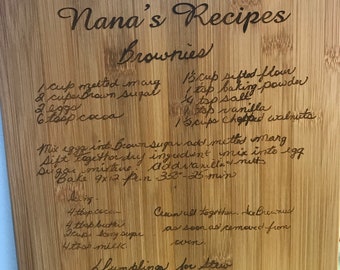 Nana's Recipes
Brownies
1 cup melted marg
2 cup brown sugar
2 eggs
6 tbsp cocoa
1 1/3 cup sifted flour
1 tsp baking powder
salt
1 tsp vanilla
cups chopped walnuts
Mix eggs into Brown sugar add melted marg
Sift together dry ingredient mix into egg
sugar mixture. Add vanilla & nuts
Bake 9x2 pan 350° 25 min
Icing
4 tbsp cocoa
4 tbsp butter
2 cup icing sugar
4 tbs milk
Cream all together. Ice Brownies
as soon as removed from
oven
Dumplings for Stew